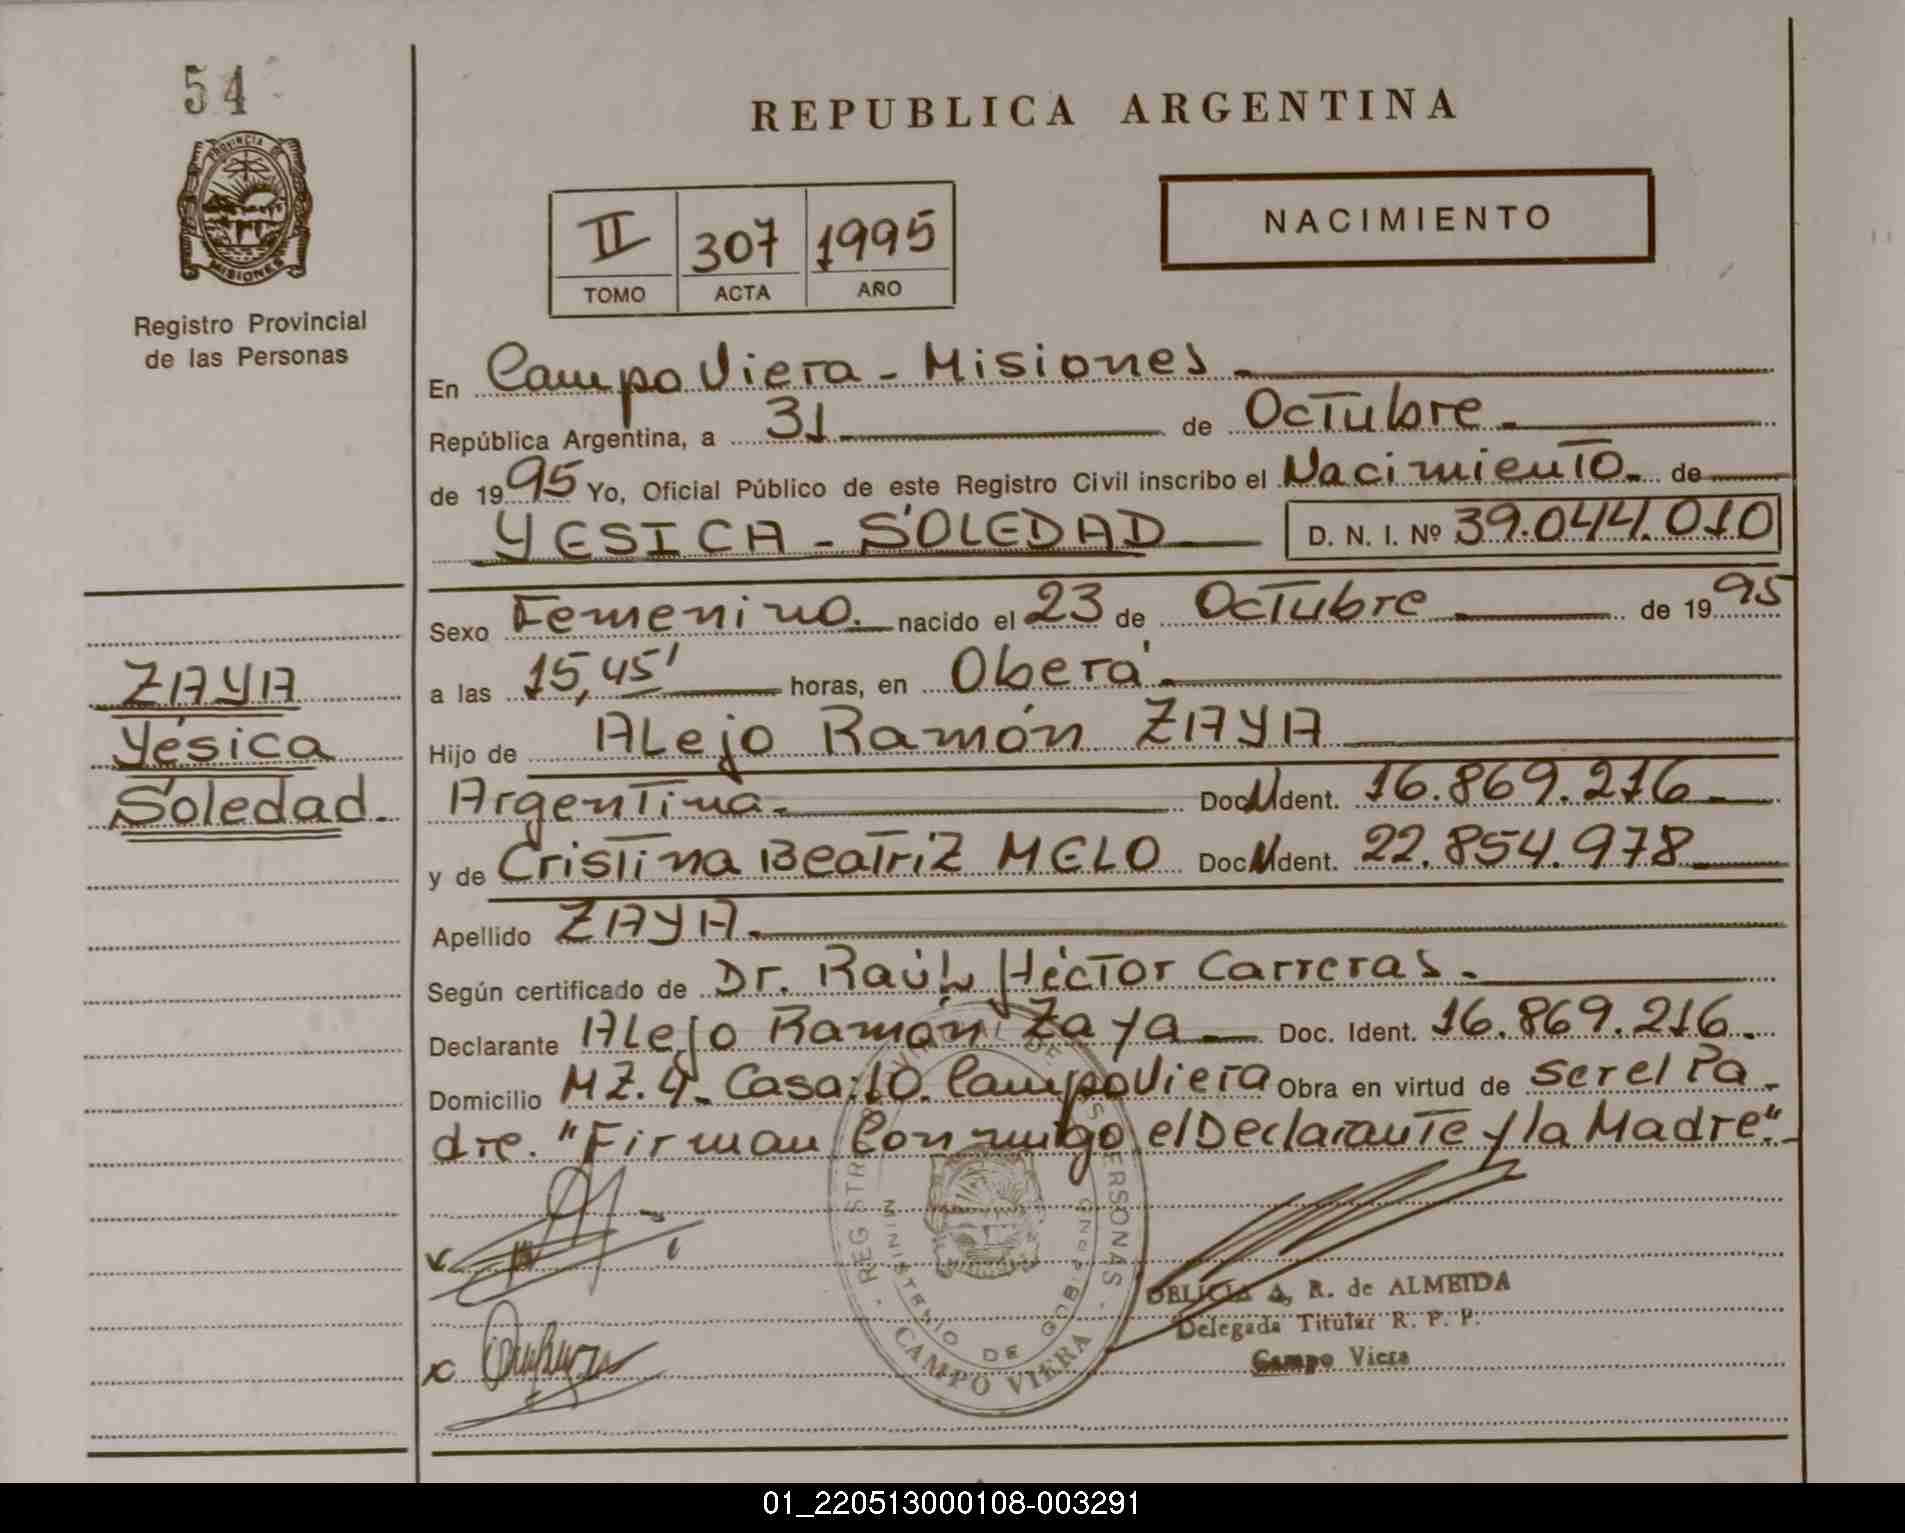 54
PROVINCIA DE
MISIONES
Registro Provincial
de las Personas
REPUBLICA ARGENTINA
II 307 1995
TOMO ACTA AÑO
NACIMIENTO
En Campo Viera - Misiones
República Argentina, a 31 de Octubre
de 1995 Yo, Oficial Público de este Registro Civil inscribo el Nacimiento de
YESICA - SOLEDAD D. N. I. Nº 39.044.010
Sexo Femenino. nacido el 23 de Octubre de 1995
a las 15,45' horas, en Oberá.
Hijo de Alejo Ramón ZAYA
Argentina. Doc. Ident. 16.869.216
y de Cristina Beatriz MELO Doc. Ident. 22.854.978
Apellido ZAYA.
Según certificado de Dr. Raúl Héctor Carreras.
Declarante Alejo Ramón Zaya Doc. Ident. 16.869.216.
Domicilio MZ. 4. Casa: 10. Campo Viera Obra en virtud de ser el Pa-
dre. "Firman Conmigo el Declarante y la Madre".
ZAYA
Yésica
Soledad.
REGISTRO PROVINCIAL DE LAS PERSONAS
MINISTERIO DE GOBIERNO
CAMPO VIERA
DELICIA A. R. de ALMEIDA
Delegada Titular R. P. P.
Campo Viera
01_220513000108-003291